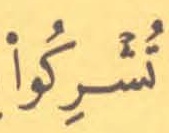 تُشْرِكُواْ